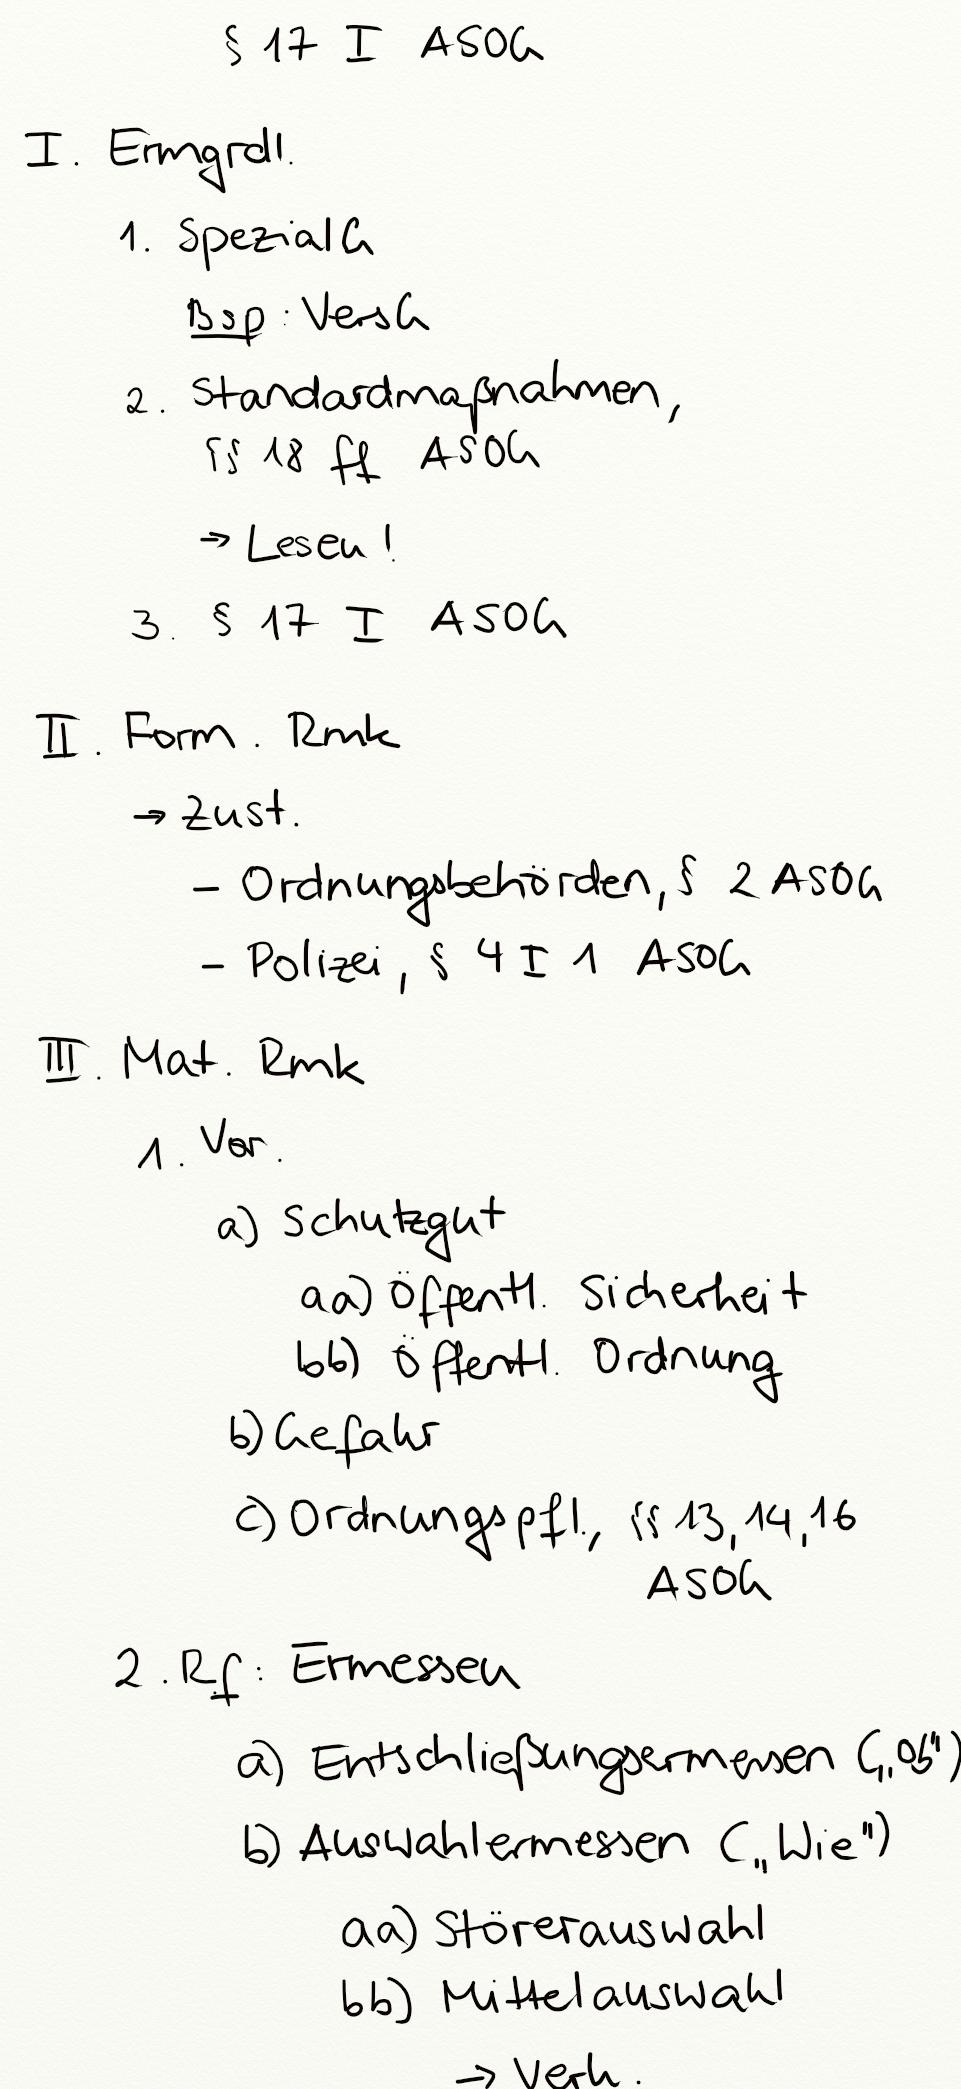 § 17 I ASOG
I. Ermgrdl.
1. SpezialG
Bsp: VersG
2. Standardmaßnahmen,
§§ 18 ff ASOG
→ Lesen!
3. § 17 I ASOG
II. Form. Rmk
→ Zust.
- Ordnungsbehörden, § 2 ASOG
- Polizei, § 4 I 1 ASOG
III. Mat. Rmk
1. Vor.
a) Schutzgut
aa) Öffentl. Sicherheit
bb) Öffentl. Ordnung
b) Gefahr
c) Ordnungspfl., §§ 13, 14, 16
ASOG
2. Rf: Ermessen
a) Entschließungsermessen („Ob“)
b) Auswahlermessen („Wie“)
aa) Störerauswahl
bb) Mittelauswahl
→ Verh.